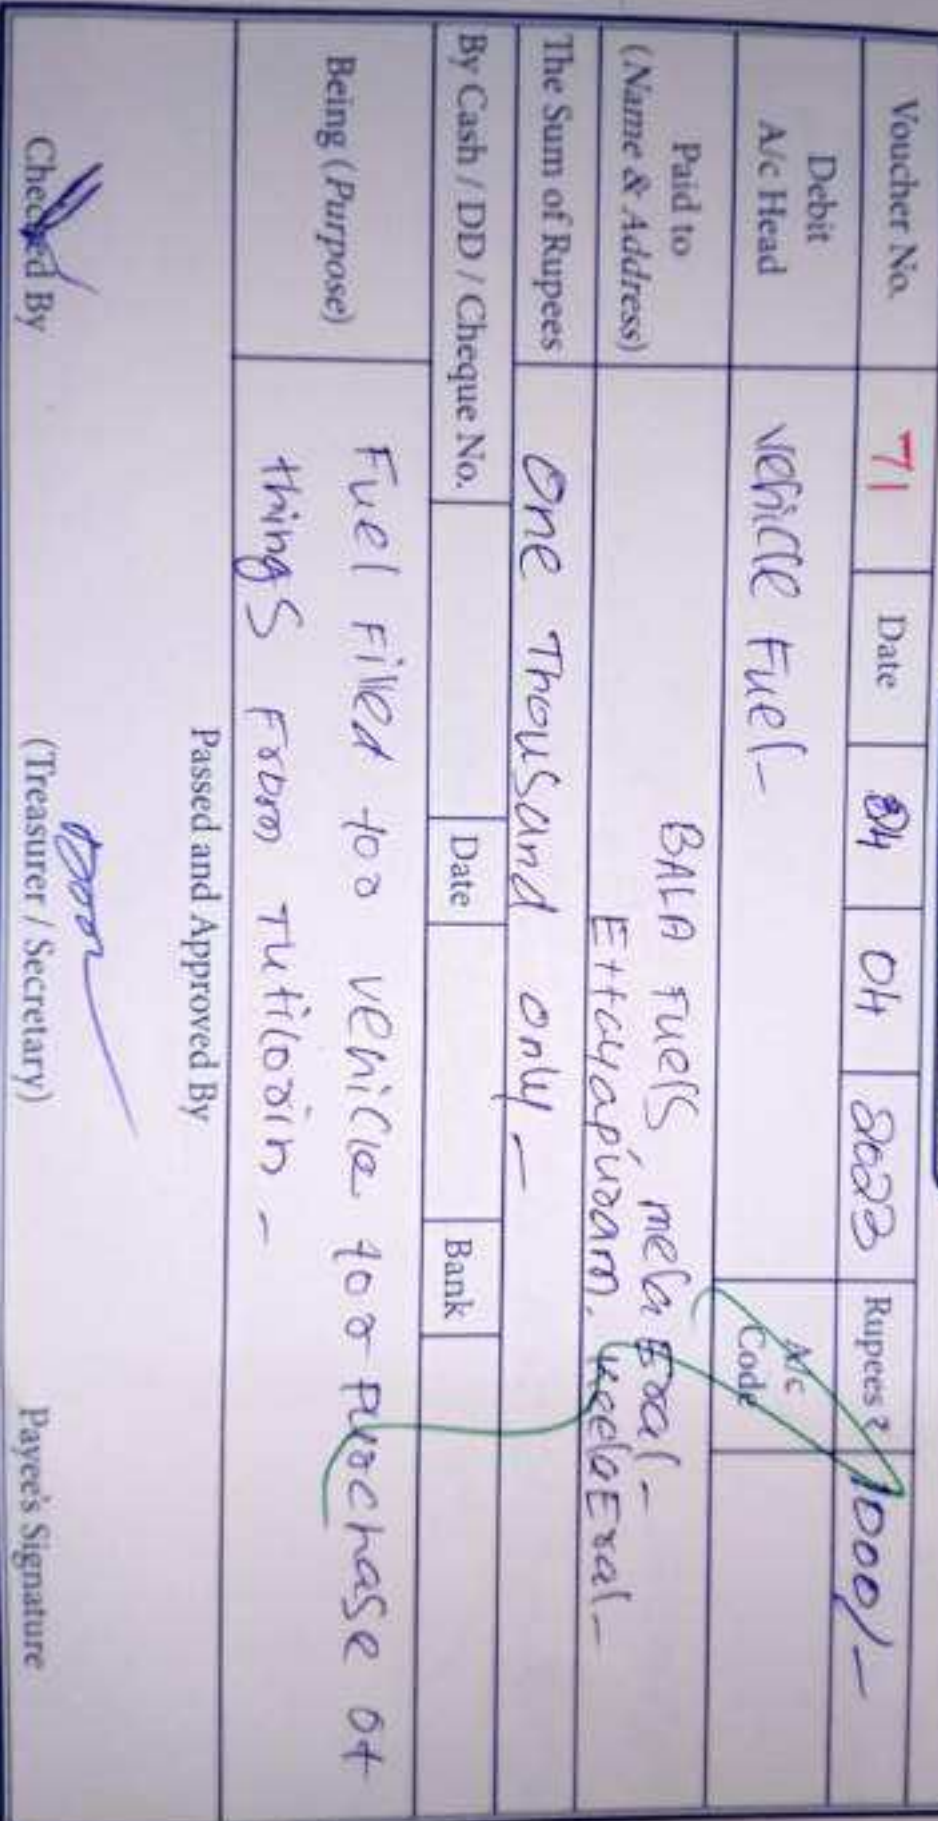 Voucher No. 71 Date 04 04 2023 Rupees ₹ 1000/-
Debit A/c Head Vehicle Fuel- A/c Code
Paid to BALA Fuels, mela Eral-
(Name & Address) Ettayapuram, Eral-
The Sum of Rupees One Thousand only -
By Cash / DD / Cheque No. Date Bank
Being (Purpose) Fuel Filled for vehicle for purchase of
things From Tuticorin -
Passed and Approved By
Checked By (Treasurer / Secretary) Payee's Signature